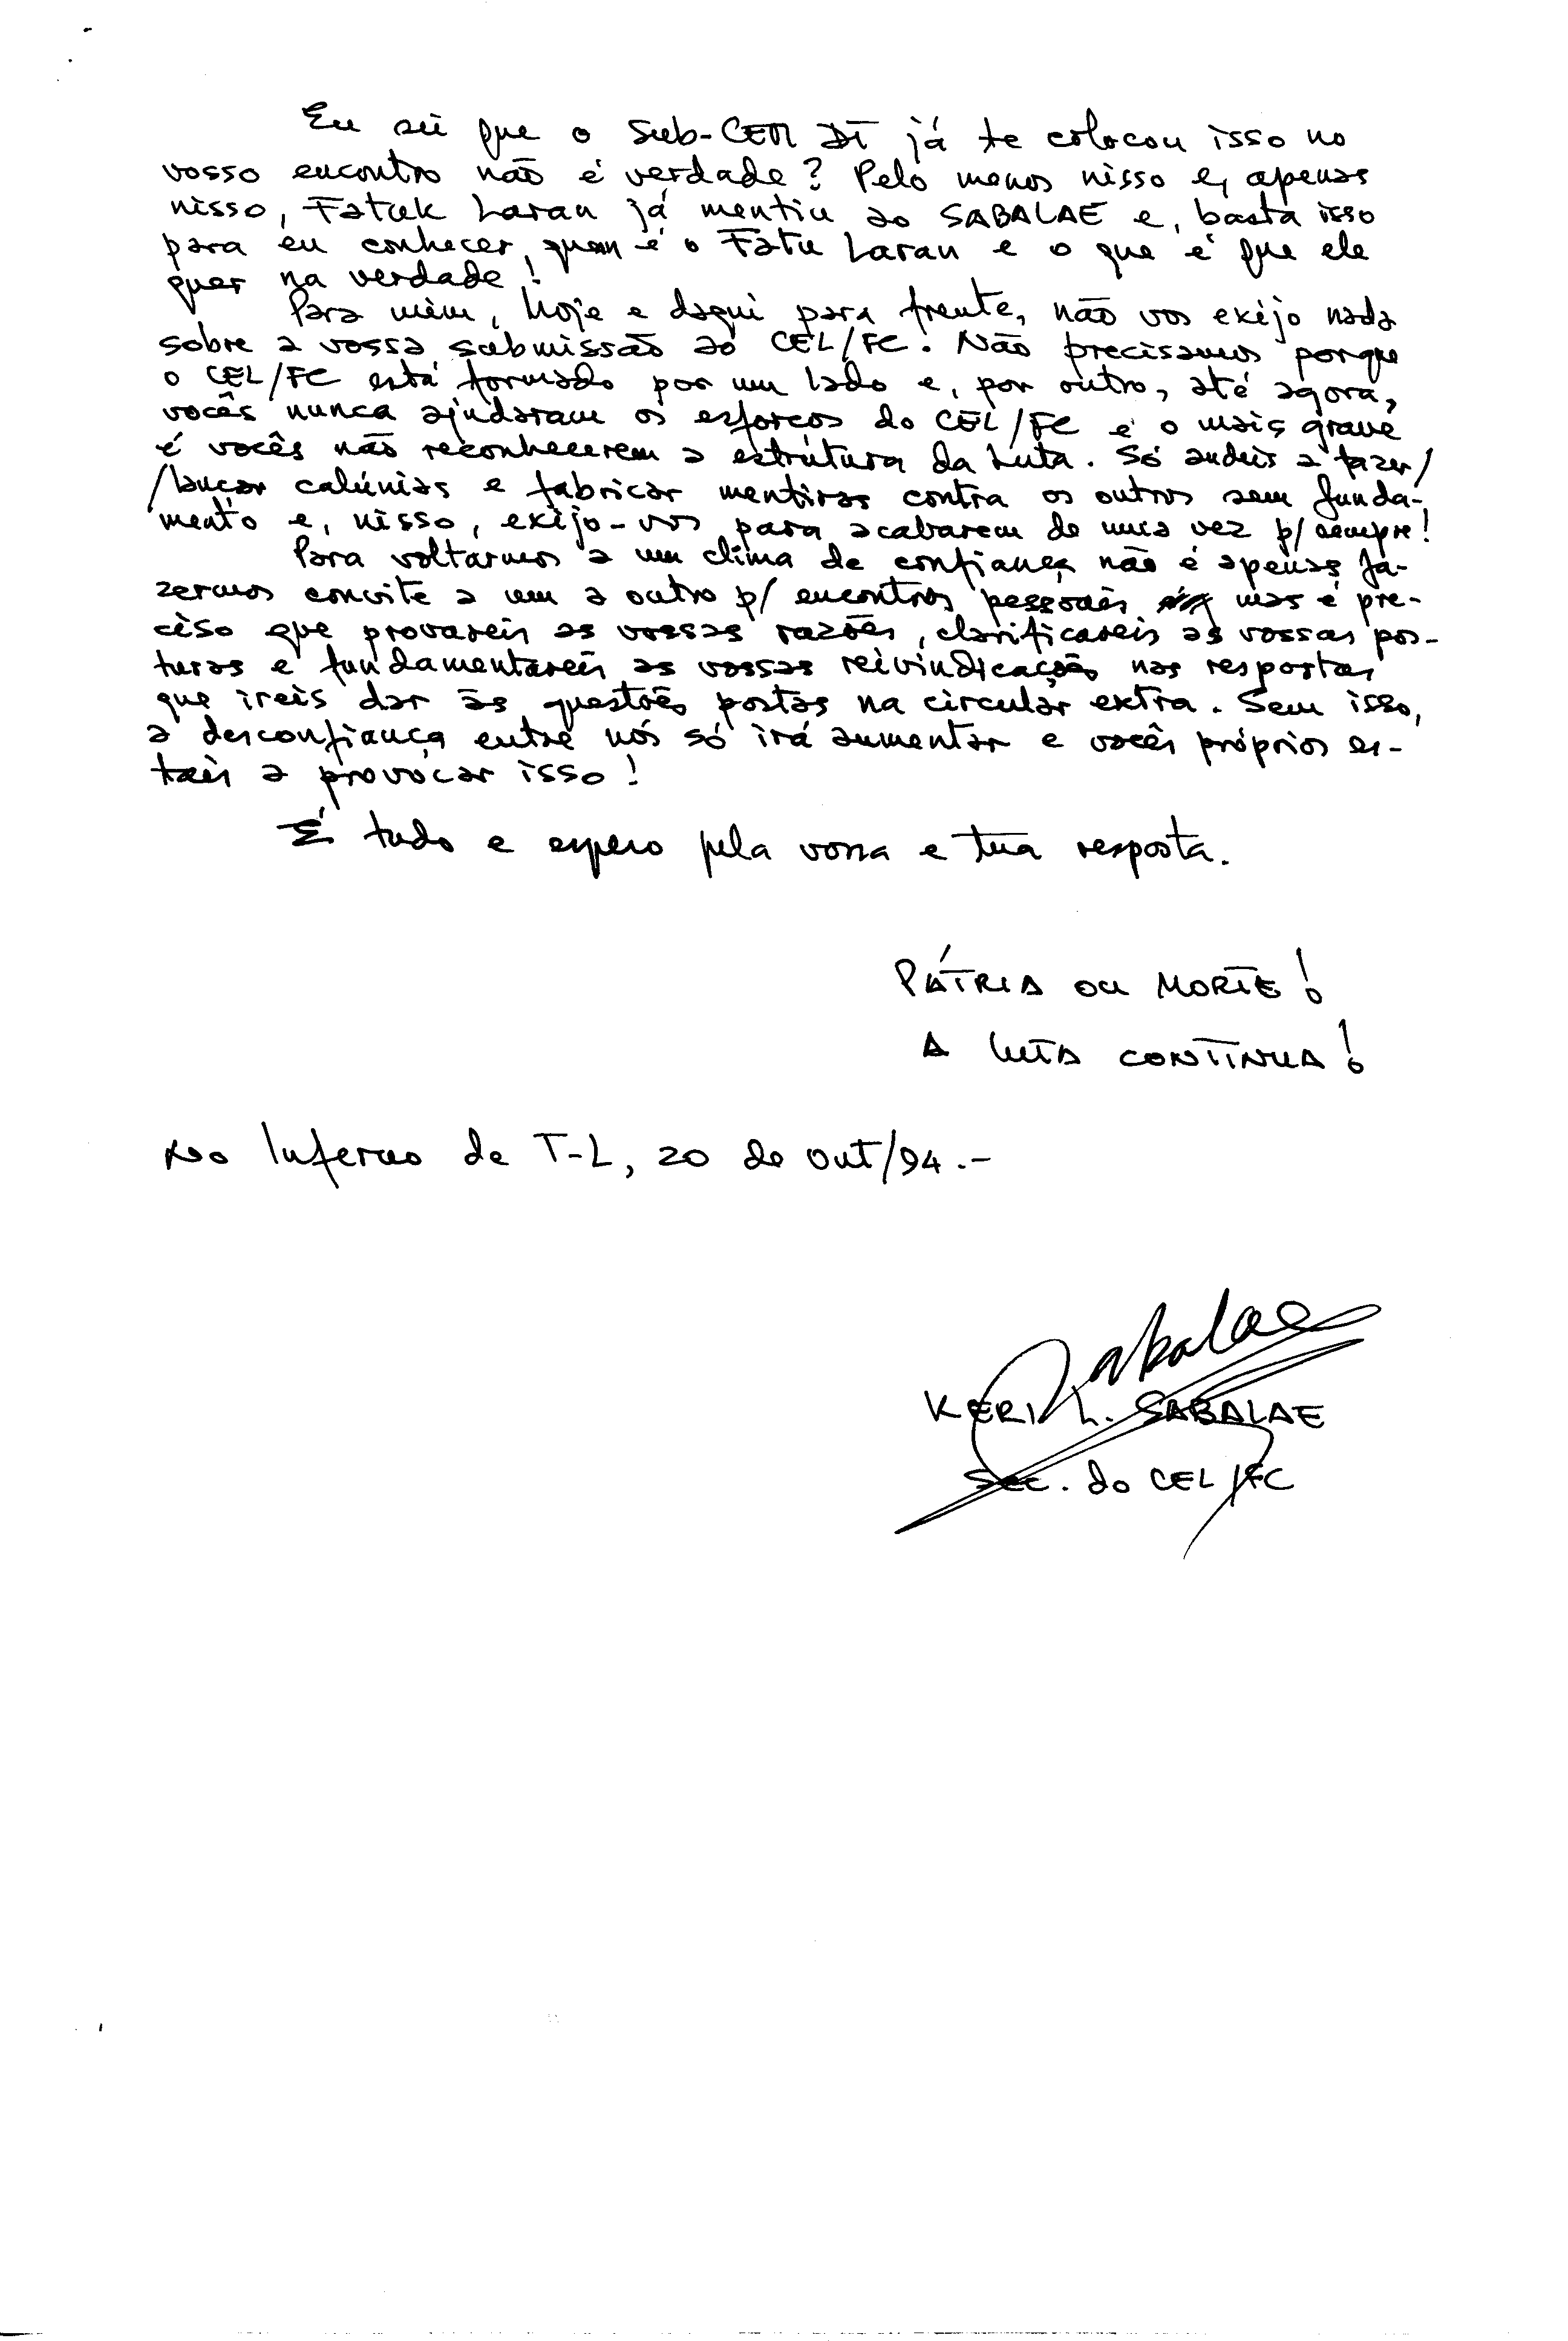 Eu sei que o Sub-CEM DI já te colocou isso no
vosso encontro não é verdade? Pelo menos nisso e, apenas
nisso, Fatuk Laran já mentiu ao SABALAE e, basta isso
para eu conhecer, quem é o Fatu Laran e o que é que ele
quer na verdade!
Para mim, hoje e daqui para frente, não vos exijo nada
sobre a vossa submissão ao CEL/FC. Não precisamos porque
o CEL/FC está formado por um lado e, por outro, até agora,
vocês nunca ajudaram os esforços do CEL/FC e o mais grave
é vocês não reconhecerem a estrutura da Luta. Só andais a fazer/
/lançar calúnias e fabricar mentiras contra os outros sem funda-
mento e, nisso, exijo-vos para acabarem de uma vez p/ sempre!
Para voltarmos a um clima de confiança não é apenas fa-
zermos convite a um a outro p/ encontros pessoais mas é pre-
ciso que provareis as vossas razões, clarificareis as vossas pos-
turas e fundamentareis as vossas reivindicações nas respostas
que ireis dar às questões postas na circular extra. Sem isso,
a desconfiança entre nós só irá aumentar e vocês próprios es-
tais a provocar isso!
É tudo e espero pela vossa e tua resposta.
PÁTRIA OU MORTE!
A LUTA CONTINUA!
No Inferno de T-L, 20 de Out/94.-
Sabalae
KERI L. SABALAE
Sec. do CEL/FC